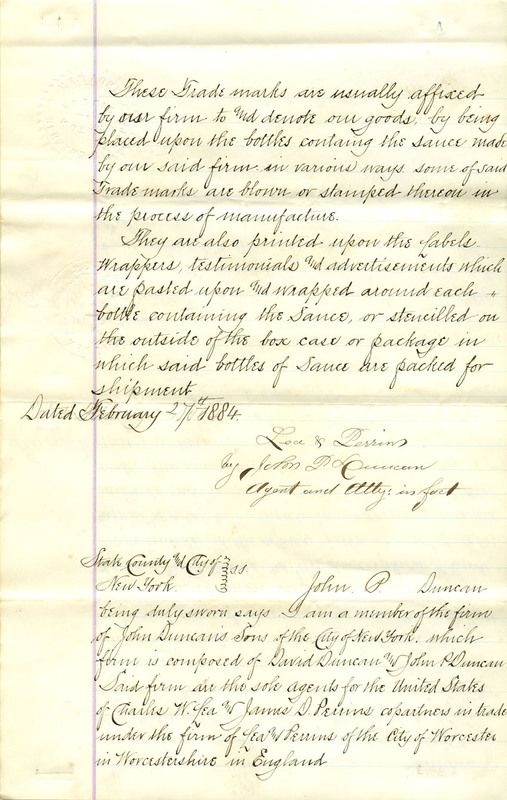 These Trade marks are usually affixed
by our firm to and denote our goods, by being
placed upon the bottles containg the Sauce made
by our said firm in various ways. some of said
Trade marks are blown or stamped thereon in
the process of manufacture.
They are also printed upon the labels.
Wrappers, testimonials and advertisements which
are pasted upon and wrapped around each
bottle containing the Sauce, or stencilled on
the outside of the box case or package in
which said bottles of Sauce are packed for
shipment
Dated February 27th 1884.
Lea & Perrins
by John P Duncan
Agent and Atty: in fact
State County and City of
New York. ss.
John. P. Duncan
being duly sworn says. I am a member of the firm
of John Duncan's Sons of the City of New York. which
firm is composed of David Duncan and John P. Duncan
Said firm are the sole agents for the United States
of Charles W. Lea and James D. Perrins copartners in trade
under the firm of Lea and Perrins of the City of Worcester
in Worcestershire in England